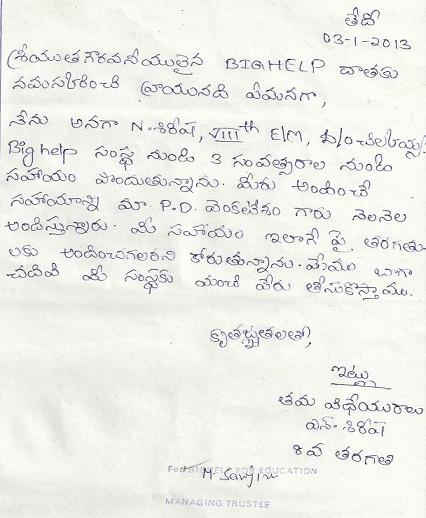 తేదీ
03-1-2013
శ్రీయుత గౌరవనీయులైన BIGHELP దాతకు
నమస్కరించి వ్రాయునది ఏమనగా,
నేను అనగా N. శిరీష, VIIIth E/M, D/o
Big help సంస్థ నుండి 3 సంవత్సరాల నుండి
సహాయం పొందుతున్నాను. మీరు అందించే
సహాయాన్ని మా P.D. వెంకటేశం గారు నెలనెల
అందిస్తున్నారు. మీ సహాయం ఇలానే పై తరగతు
లకు అందించగలరని కోరుతున్నాను. మేము బాగా
చదివి మీ సంస్థకు మంచి పేరు తీసుకొస్తాము.
కృతజ్ఞతలతో,
ఇట్లు
తమ విధేయురాలు
ఎన్. శిరీష
8వ తరగతి
For BIGHELP FOR EDUCATION
MANAGING TRUSTEE